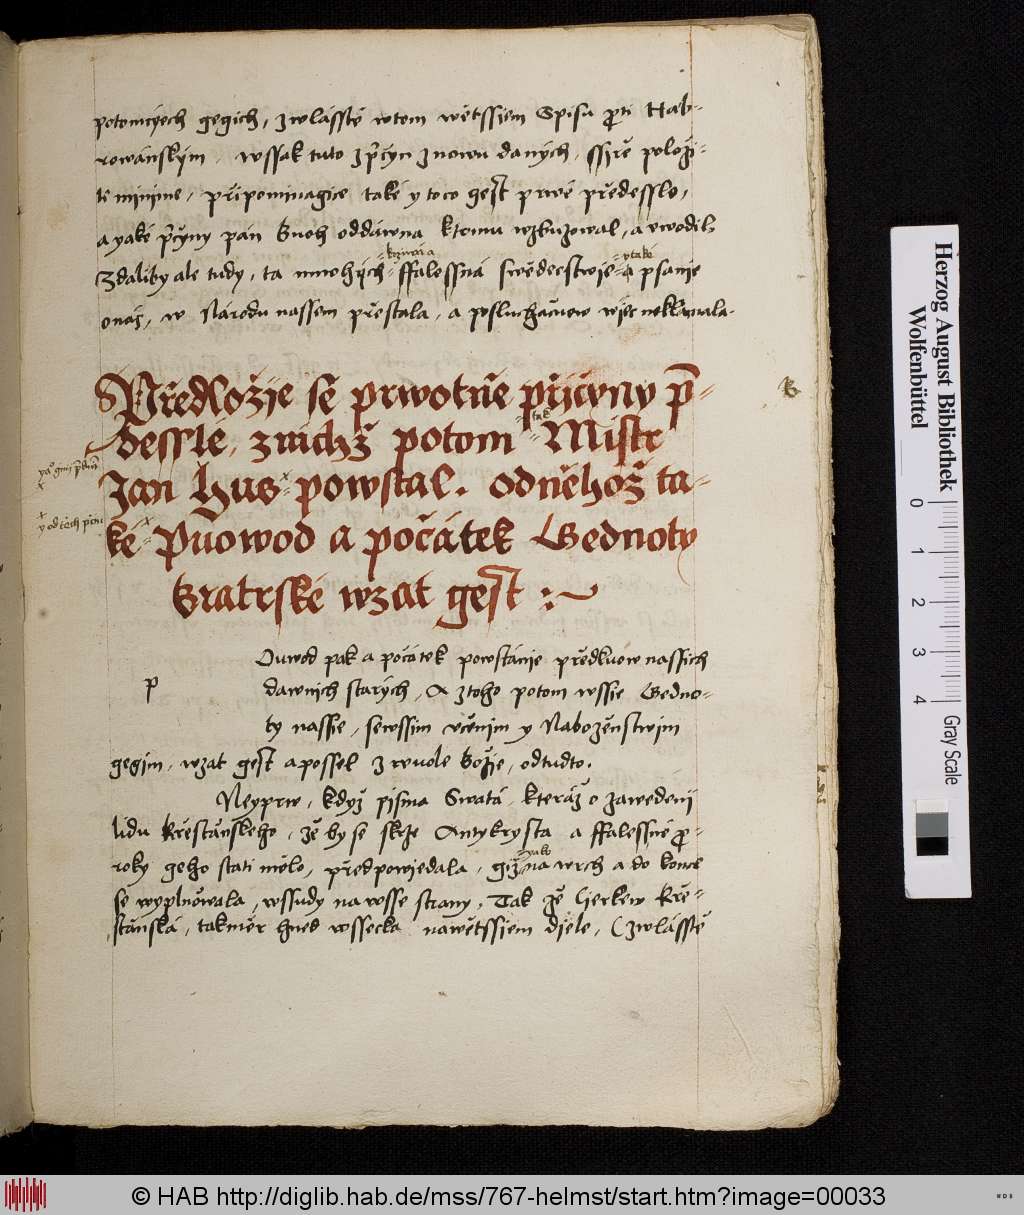 potomcyech gegich, zwlásstě wtom wětssiem Spisu proti Hab-
rowánským, wssak tuto z przicyn znowu daných, ssijře položi-
ti minime, připominagice také y toto gest prwé předesslo,
a yaké przicyny pán Buoh oddáwna k tomu wzbuzowal, a uwodil
Zdaliby ale tudy, ta mnohých ffalessná swědectwie a psanie
onás, w Národu nassem přestala, a posluchačuow wjec neklamala.
Předložie se prwotnie přijčyny prze-
dessle, znichž potom Mistr
Jan Hus powstal. odněhož ta-
ké Puowod a počátek Gednoty
Bratrské wzat gest
B
Ouwod pak a počátek powstánie předkuow nassich
p
dawnich starých, A ztoho potom wssie Gedno-
ty nassie, sewssim učenim y Nabožěnstwim
gegim, wzat gest a possel z wuole Božie, odtudto.
Neyprw, když pisma Swatá, kteráž o zawedeni
lidu křestianskeho, zě by se skrze Antykrysta a ffalessné pro-
roky geho stati mělo, předpowiedala, giž na wrch a do konce
se wyplnowala, wssudy na wsse strany, Tak že Cierkew Kře-
stianská, takměř hned wssecka nawětssiem diele, (zwlásstě
Herzog August Bibliothek
Wolfenbüttel
0 1 2 3 4
Gray Scale
© HAB http://diglib.hab.de/mss/767-helmst/start.htm?image=00033